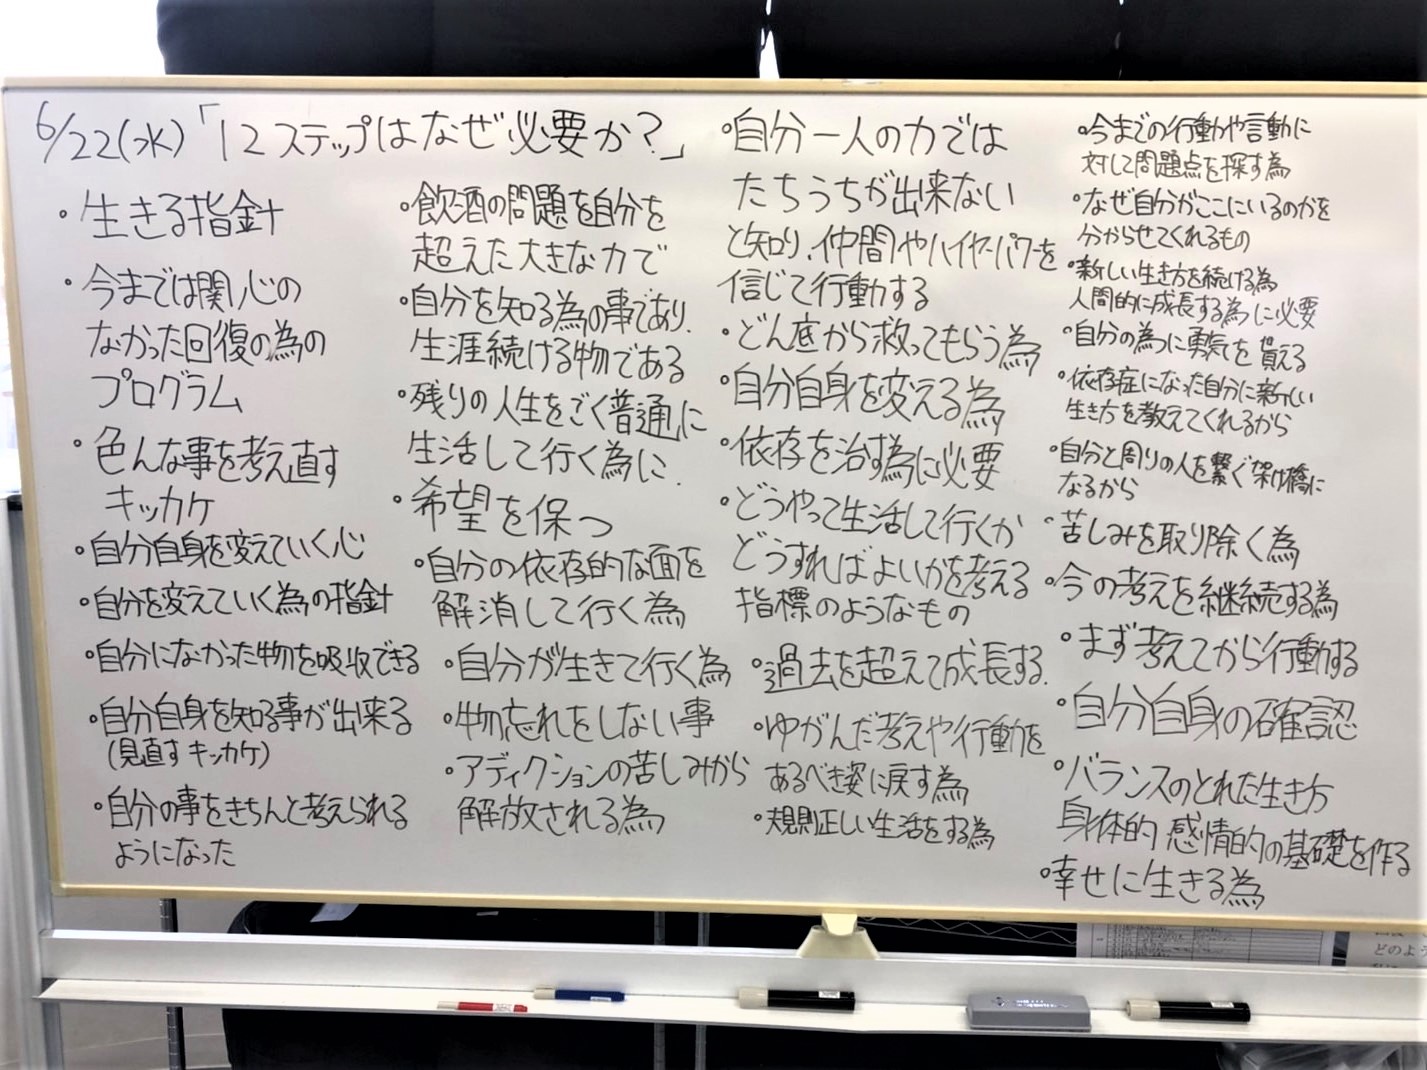 6/22(水)「12ステップはなぜ必要か?」
・生きる指針
・今までは関心の
なかった回復の為の
プログラム
・色んな事を考え直す
キッカケ
・自分自身を変えていく心
・自分を変えていく為の指針
・自分になかった物を吸収できる
・自分自身を知る事が出来る
(見直すキッカケ)
・自分の事をきちんと考えられる
ようになった
・飲酒の問題を自分を
超えた大きな力で
・自分を知る為の事であり、
生涯続ける物である
・残りの人生をごく普通に
生活して行く為に.
・希望を保つ
・自分の依存的な面を
解消して行く為
・自分が生きて行く為
・物忘れをしない事
・アディクションの苦しみから
解放される為
・自分一人の力では
たちうちが出来ない
と知り、仲間やハイヤーパワーを
信じて行動する
・どん底から救ってもらう為
・自分自身を変える為
・依存を治す為に必要
・どうやって生活して行くか
どうすればよいかを考える
指標のようなもの
・過去を超えて成長する.
・ゆがんだ考えや行動を
あるべき姿に戻す為
・規則正しい生活をする為
・今までの行動や言動に
対して問題点を探す為
・なぜ自分がここにいるのかを
分からせてくれるもの
・新しい生き方を続ける為
人間的に成長する為に必要
・自分の為に勇気を貰える
・依存症になった自分に新しい
生き方を教えてくれるから
・自分と周りの人を繋ぐ架け橋に
なるから
・苦しみを取り除く為
・今の考えを継続する為
・まず考えてから行動する
・自分自身の確認
・バランスのとれた生き方
身体的 感情的の基礎を作る
・幸せに生きる為
どのよう